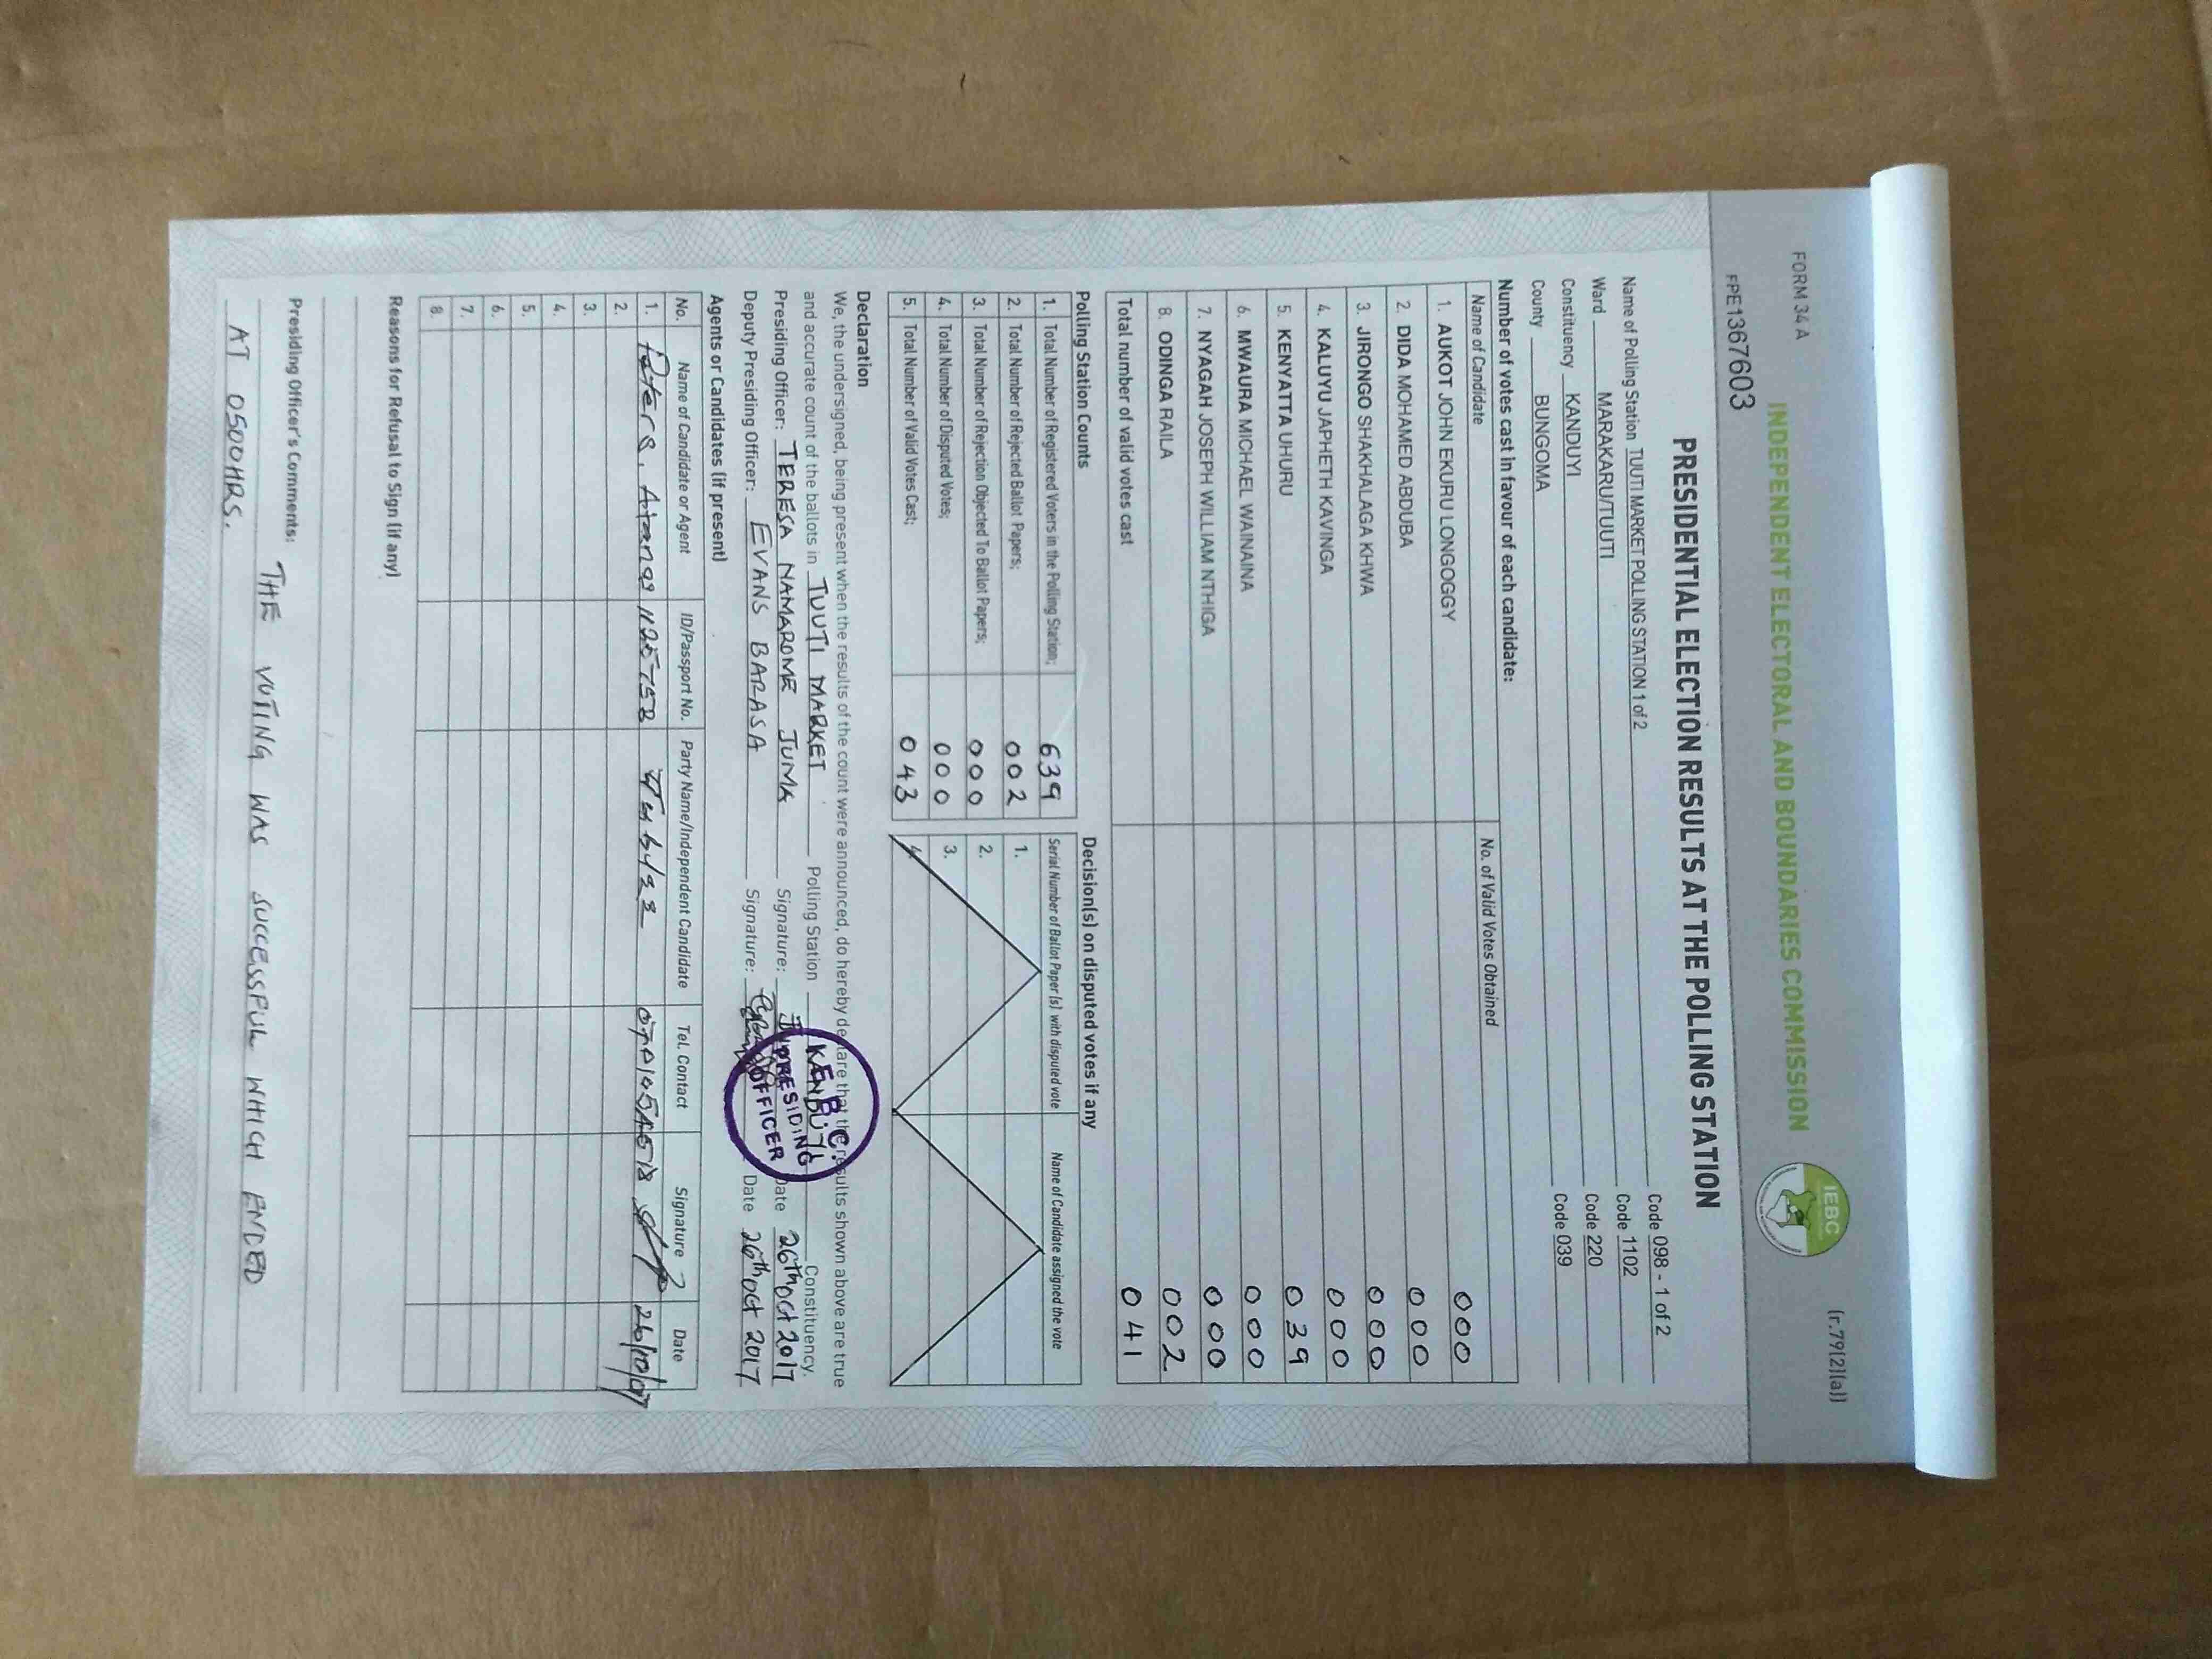 FORM 34 A
(r.79(2)(a))
INDEPENDENT ELECTORAL AND BOUNDARIES COMMISSION
IEBC
FPE1367603
PRESIDENTIAL ELECTION RESULTS AT THE POLLING STATION
Name of Polling Station TUUTI MARKET POLLING STATION 1 of 2 Code 098 - 1 of 2
Ward MARAKARU/TUUTI Code 1102
Constituency KANDUYI Code 220
County BUNGOMA Code 039
Number of votes cast in favour of each candidate:
Name of Candidate No. of Valid Votes Obtained
1. AUKOT JOHN EKURU LONGOGGY 000
2. DIDA MOHAMED ABDUBA 000
3. JIRONGO SHAKHALAGA KHWA 000
4. KALUYU JAPHETH KAVINGA 000
5. KENYATTA UHURU 039
6. MWAURA MICHAEL WAINAINA 000
7. NYAGAH JOSEPH WILLIAM NTHIGA 000
8. ODINGA RAILA 002
Total number of valid votes cast 041
Polling Station Counts
1. Total Number of Registered Voters in the Polling Station; 639
2. Total Number of Rejected Ballot Papers; 002
3. Total Number of Rejection Objected To Ballot Papers; 000
4. Total Number of Disputed Votes; 000
5. Total Number of Valid Votes Cast; 043
Decision(s) on disputed votes if any
Serial Number of Ballot Paper (s) with disputed vote Name of Candidate assigned the vote
1.
2.
3.
4.
Declaration
We, the undersigned, being present when the results of the count were announced, do hereby declare that the results shown above are true
and accurate count of the ballots in TUUTI MARKET Polling Station KANDUYI Constituency.
Presiding Officer: TERESA NAMAROME JUMA Signature: Date 26th Oct 2017
Deputy Presiding Officer: EVANS BARASA Signature: Date 26th Oct 2017
PRESIDING
OFFICER
Agents or Candidates (if present)
No. Name of Candidate or Agent ID/Passport No. Party Name/Independent Candidate Tel. Contact Signature Date
1. Peter S. Jubilee
2.
3.
4.
5.
6.
7.
8.
Reasons for Refusal to Sign (if any)
Presiding Officer's Comments:
THE VOTING WAS SUCCESSFUL WHICH ENDED
AT 0500HRS.